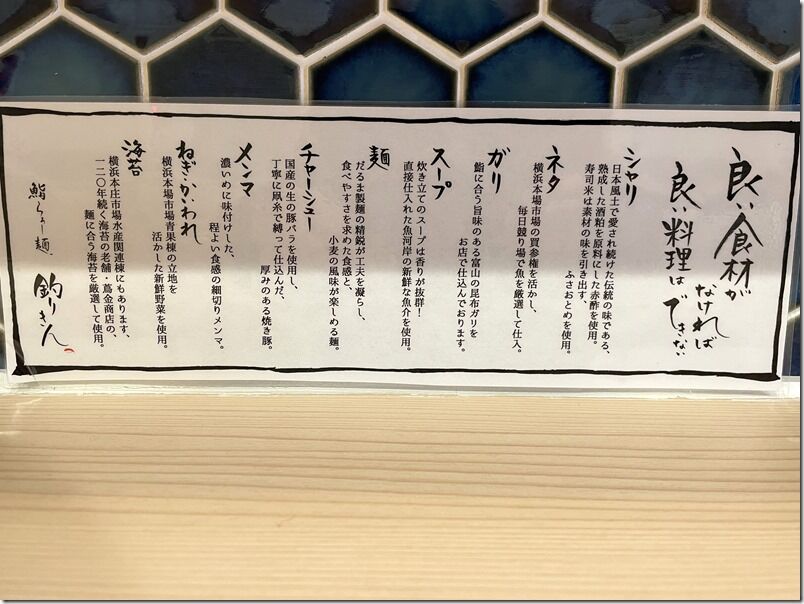 良い食材が
なければ
良い料理は
できない
シャリ
日本風土で愛され続けた伝統の味である、
熟成した酒粕を原料にした赤酢を使用。
寿司米は素材の味を引き出す、
ふさおとめを使用。
ネタ
横浜本場市場の買参権を活かし、
毎日競り場で魚を厳選して仕入。
ガリ
鮨に合う旨味のある富山の昆布ガリを
お店で仕込んでおります。
スープ
炊き立てのスープは香りが抜群！
直接仕入れた魚河岸の新鮮な魚介を使用。
麺
だるま製麺の精鋭が工夫を凝らし、
食べやすさを求めた食感と、
小麦の風味が楽しめる麺。
チャーシュー
国産の生の豚バラを使用し、
丁寧に凧糸で縛って仕込んだ、
厚みのある焼き豚。
メンマ
濃いめに味付けした、
程よい食感の細切りメンマ。
ねぎ・かいわれ
横浜本場市場青果棟の立地を
活かした新鮮野菜を使用。
海苔
横浜本庄市場水産関連棟にもあります、
一二〇年続く海苔の老舗・蔦金商店の、
麺に合う海苔を厳選して使用。
鮨らぁー麺
釣りきん